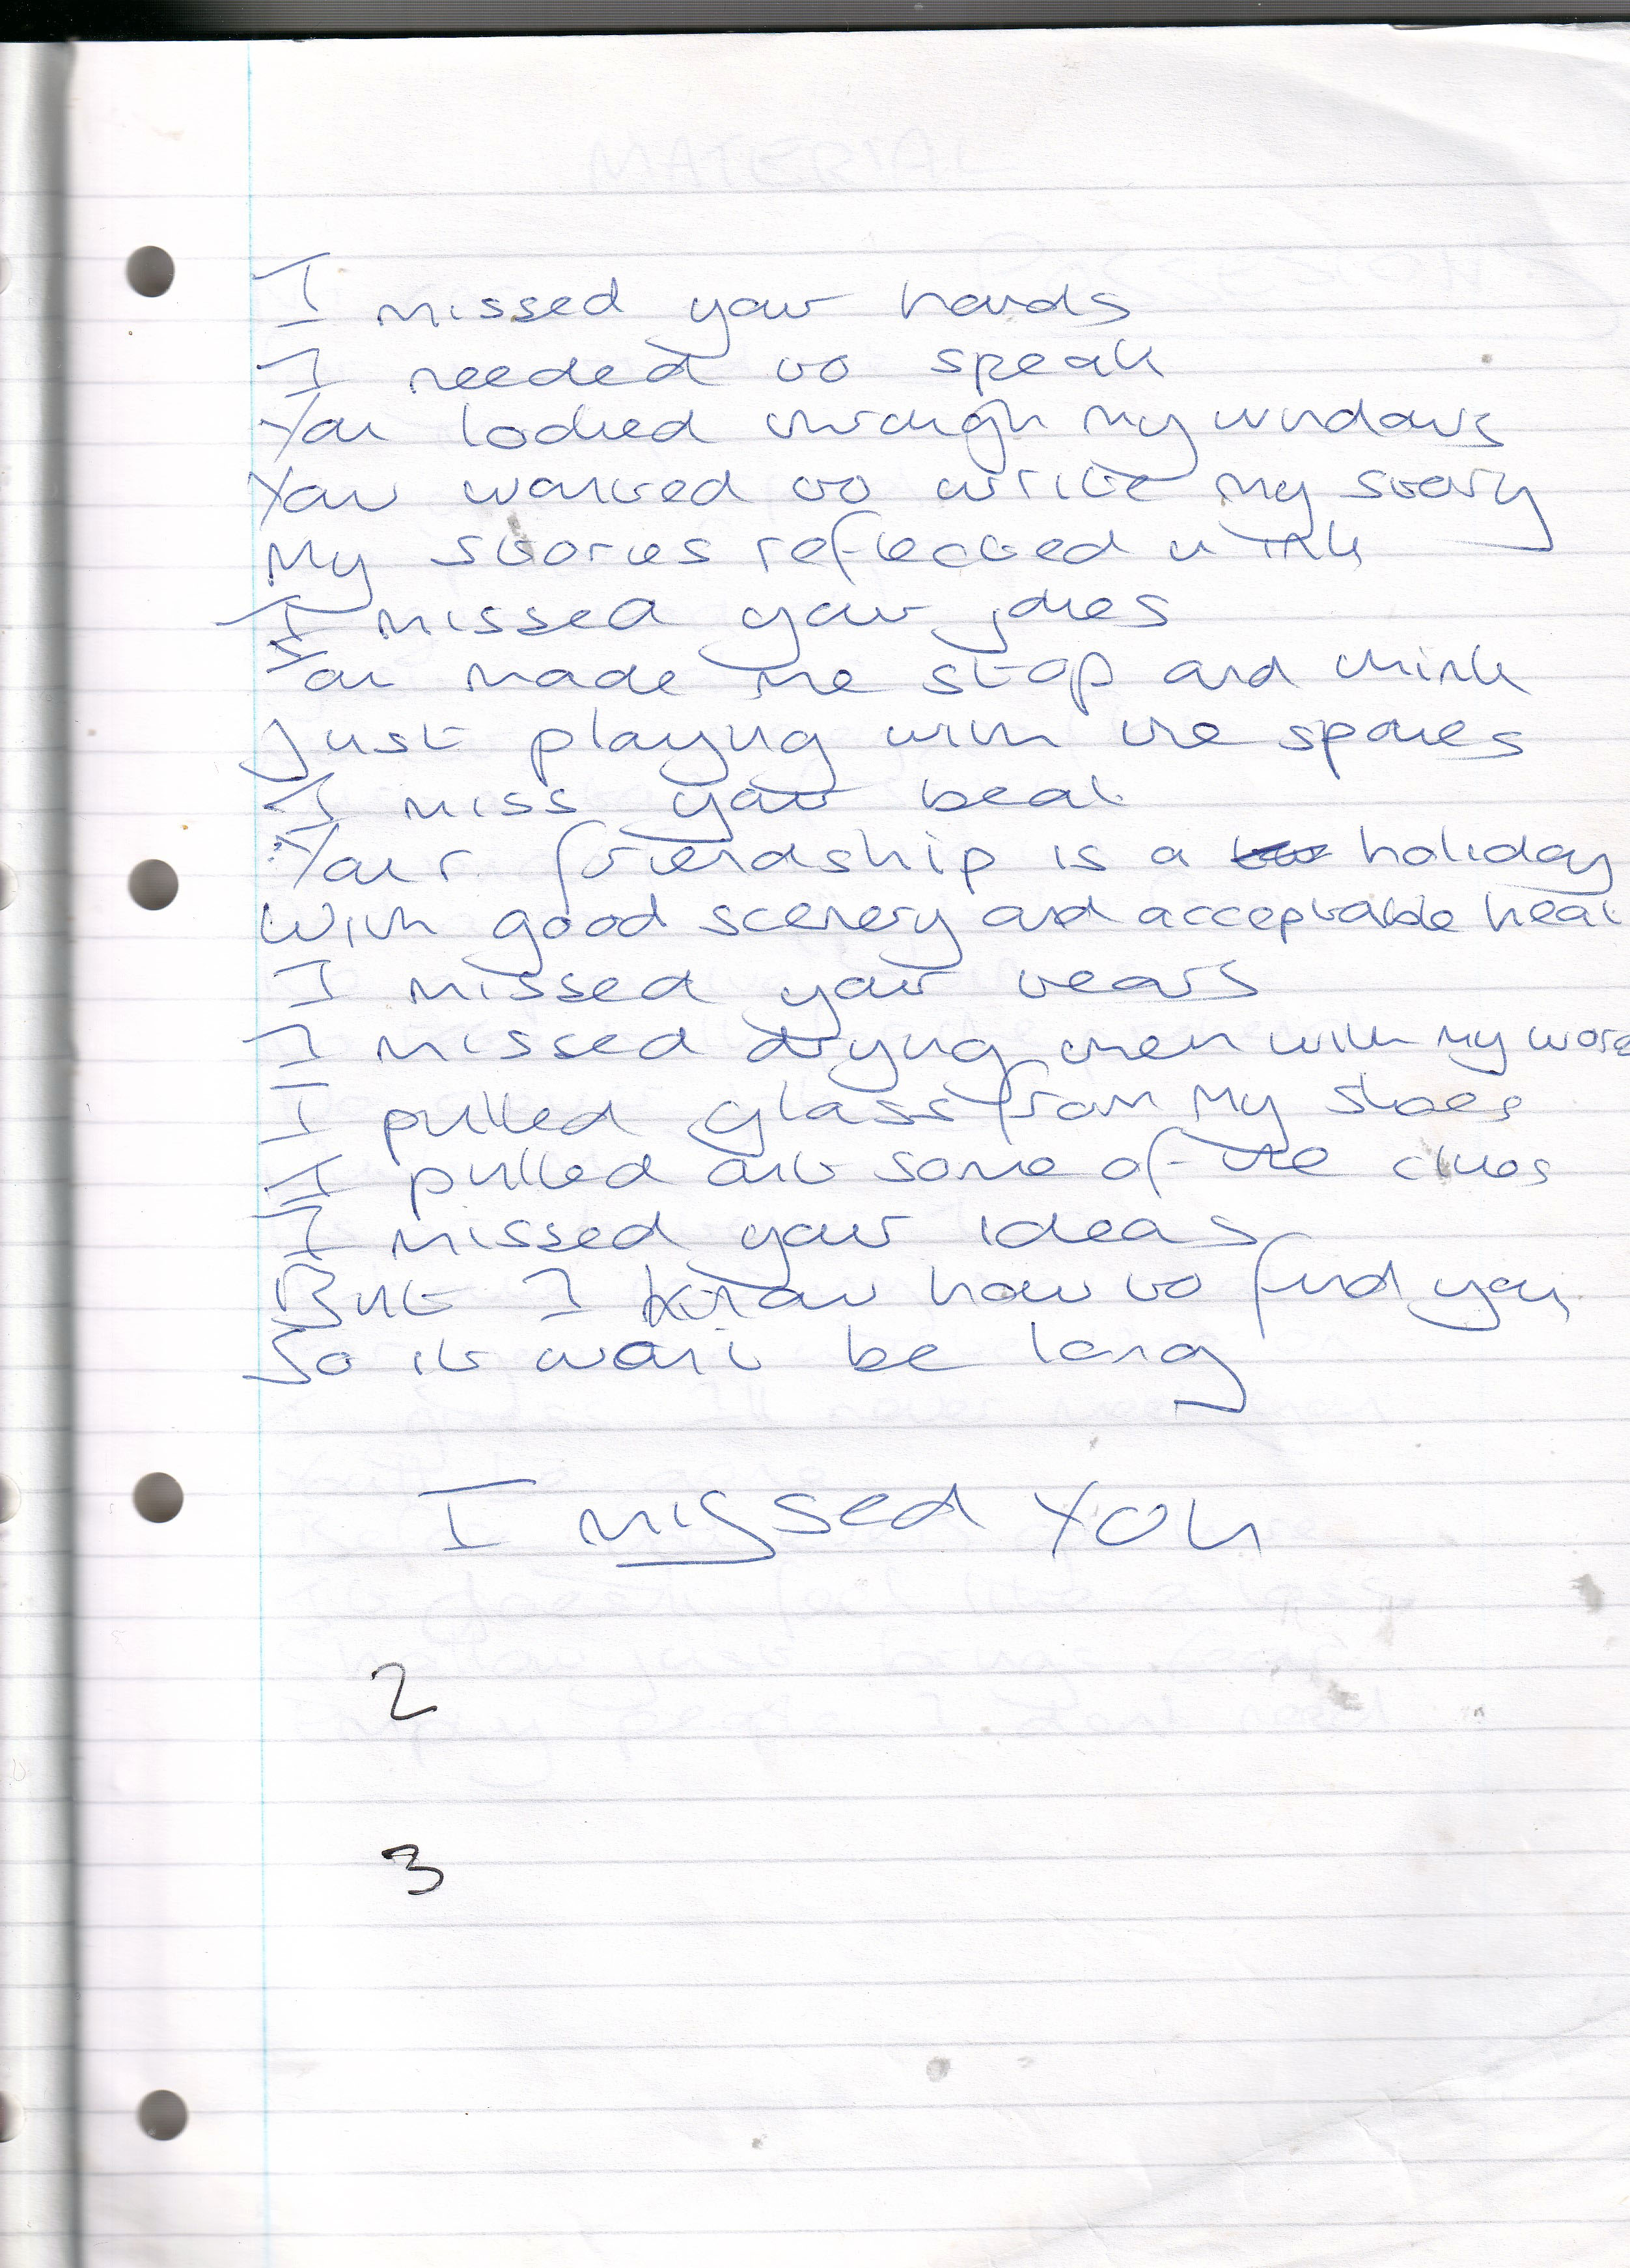 I missed your hands
I needed to speak
You looked through my windows
You wanted to write my story
My stories reflected in ink
I missed your jokes
You made me stop and think
Just playing with the spokes
I miss your beat
Your friendship is a holiday
With good scenery and acceptable heat
I missed your tears
I missed drying them with my words
I pulled glass from my shoes
I pulled out some of the clues
I missed your ideas
But I know how to find you
So it won't be long
I missed YOU
2
3
MATERIAL